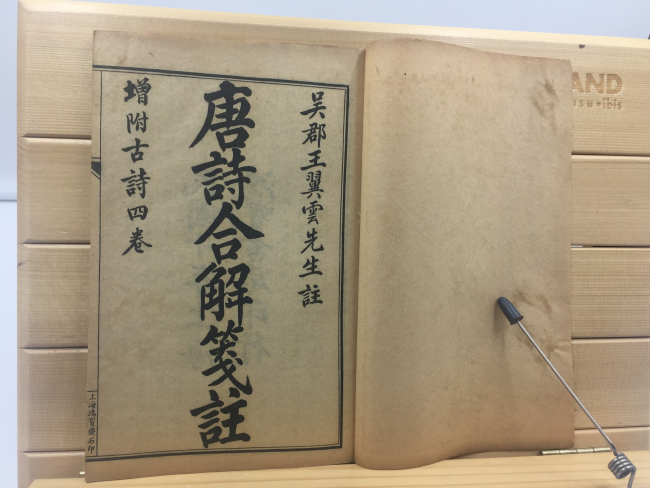 吳郡王翼雲先生註
唐詩合解箋註
增附古詩四卷
上海鴻寶齋石印
AND
ibis